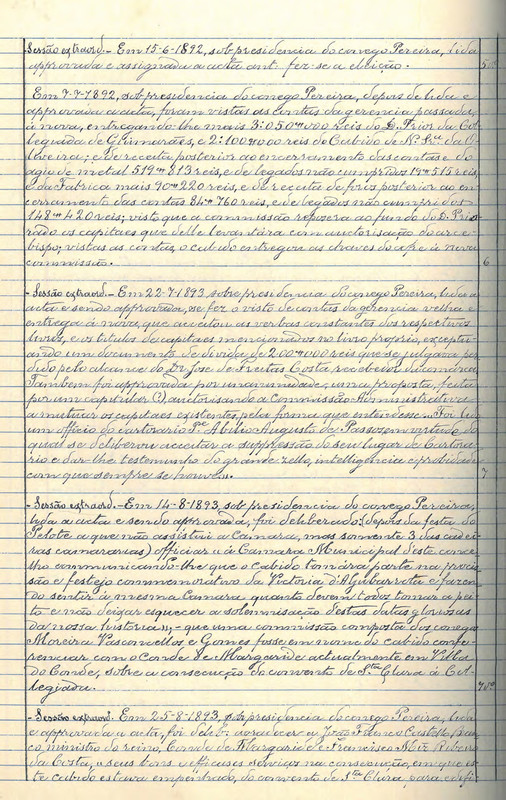 - Sessão extraord.- Em 15-6-1892, sob presidencia do conego Pereira, lida
approvada e assignada a acta ant. fez-se a eleição. 5
Em 7-7-1892, sob presidencia do conego Pereira, depois de lida e
approvada a acta, foram vistas as contas da gerencia passada,
á nova, entregando-lhe mais 3:050#000 reis do D. Prior da Col
legiada de Guimarães, e 2:100#000 reis do Cabido de N. Sra. da O
liveira; e de receita posterior ao encerramento das contas e do
agio de metal 519#813 reis, e de legados não cumpridos 19#515 reis,
E da Fabrica mais 90#220 reis, e de receita de foros posterior ao en
cerramento das contas 84#760 reis, e de legados não cumpridos
148#420 reis; visto que a commissão reposera ao fundo do D. Prio
rado os capitaes que delle levantára com auctorisação do arce-
bispo; vistas as contas, o cabido entregou as chaves do cofre á nova
commissão. 6
- Sessão extraord.- Em 22-7-1893, sobre presidencia do conego Pereira, lida a
acta e sendo approvada, se fez o visto de contas da gerencia velha e
entrega á nova, que acceitou as verbas constantes dos respectivos
livros, e os titulos de capitaes mencionados no livro proprio, exceptu
ando um documento de divida de 200#000 reis que se julgava per
dido pelo alcance do Dr. José de Freitas Costa, recebedor da comarca.
Tambem foi approvada por unanimidade, uma proposta, feita
por um capitular (?) auctorisando a Commissão Administrativa
a mutuar os capitaes existentes, pela forma que entendesse... Foi lido
um officio do cartorario Pe. Abilio Augusto de Passos em virtude do
qual se deliberou acceitar a suppressão do seu lugar de Cartora-
rio e dar-lhe testemunho do grande zello, intelligencia e probidade
com que sempre se houve». 7
- Sessão extraord.- Em 14-8-1893, sob presidencia do conego Pereira,
lida a acta e sendo approvada, foi deliberado: (depois da festa do
Pelote a que não assistiu a Camara, mas somente 3 das cadei
ras camararias) officiar « á Camara Municipal d'este conce-
lho communicando-lhe que o Cabido tomára parte na procis
são e festejo commemorativo da Victoria d'Aljubarrota e fazen
do sentir á mesma Camara quanto devem todos tomar a pei
to e não deixar esquecer a solemnisação d'estas datas gloriosas
da nossa historia»; - que uma commissão composta dos conegos
Moreira, Vasconcellos e Gomes fosse em nome do cabido confe-
renciar com o Conde de Margaride actualmente em Villa
do Conde, sobre a consecução do convento de S.ta Clara á Col-
legiada.
- Sessão extraord.- Em 25-8-1893, sob presidencia do conego Pereira, lida
e approvada a acta, foi delib. agradecer a João Franco Castello Bran
co, ministro do reino, Conde de Margaride e Francisco Ribeiro
da Costa, « seus bons e efficazes serviços na consecução, em que es
te cabido estava empenhado, do convento de S.ta Clara para edifi